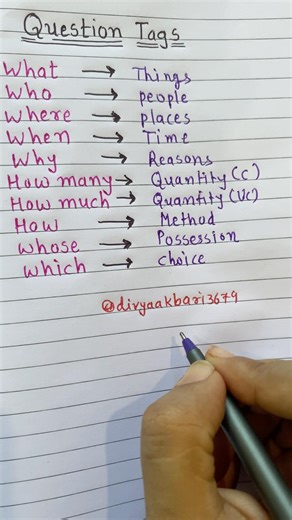 Question Tags
What → Things
Who → people
where → places
when → Time
Why → Reasons
How many → Quantity (C)
How much → Quantity (UC)
How → Method
whose → Possession
which → choice
@divyaakbari3679